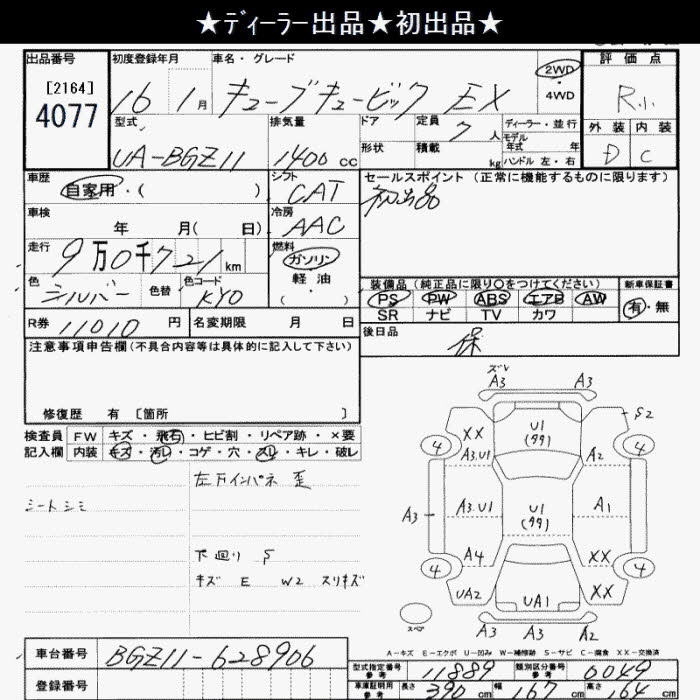 ★ディーラー出品★初出品★
出品番号
[2164]
4077
初度登録年月
16 1月
車名・グレード
キューブキュービック EX
2WD
・4WD
評価点
R小
外装 内装
D C
型式
UA-BGZ11
排気量
1400cc
ドア
形状
定員
7人
積載
kg
ディーラー・並行
モデル
年式 年
ハンドル 左・右
車歴
自家用・( )
シフト
CAT
セールスポイント(正常に機能するものに限ります)
初出品
車検
年 月( 日)
冷房
AAC
走行
9万0千721km
燃料
ガソリン
軽油
( )
色
シルバー
色替
色コード
KY0
装備品(純正品に限り○をつけてください)
PS PW ABS エアB AW
SR ナビ TV カワ
新車保証書
有・無
R券 11010円
名変期限 月 日
後日品
保
注意事項申告欄(不具合内容等は具体的に記入して下さい)
修復歴 有 [箇所 ]
検査員
記入欄
FW キズ・飛石・ヒビ割・リペア跡・×要
内装 キズ・汚レ・コゲ・穴・スレ・キレ・破レ
左右インパネ 歪
シートシミ
下回り S
キズ E W2 スリキズ
ズレ
A3 A3
S2
XX
U1
(タタ)
4 4
A3.U1
A2
A3
A3.U1
U1
(タタ)
A1
A4
XX
4 4
UA2
UA1
XX
A3 A3
A2
スペア
A-キズ E-エクボ U-凹み W-補修跡 S-サビ C-腐食 XX-交換済
車台番号
BGZ11-628906
登録番号
型式指定番号
参考
11889
類別区分番号
参考
0049
車庫証明用
参考
長さ 390cm 幅 167cm 高さ 164cm